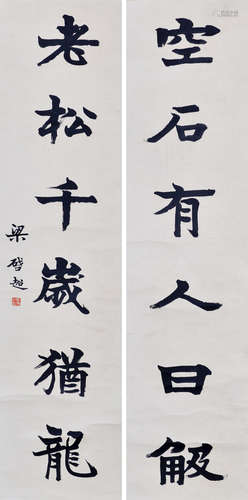 空石有人曰觙
老松千歲猶龍
梁啓超